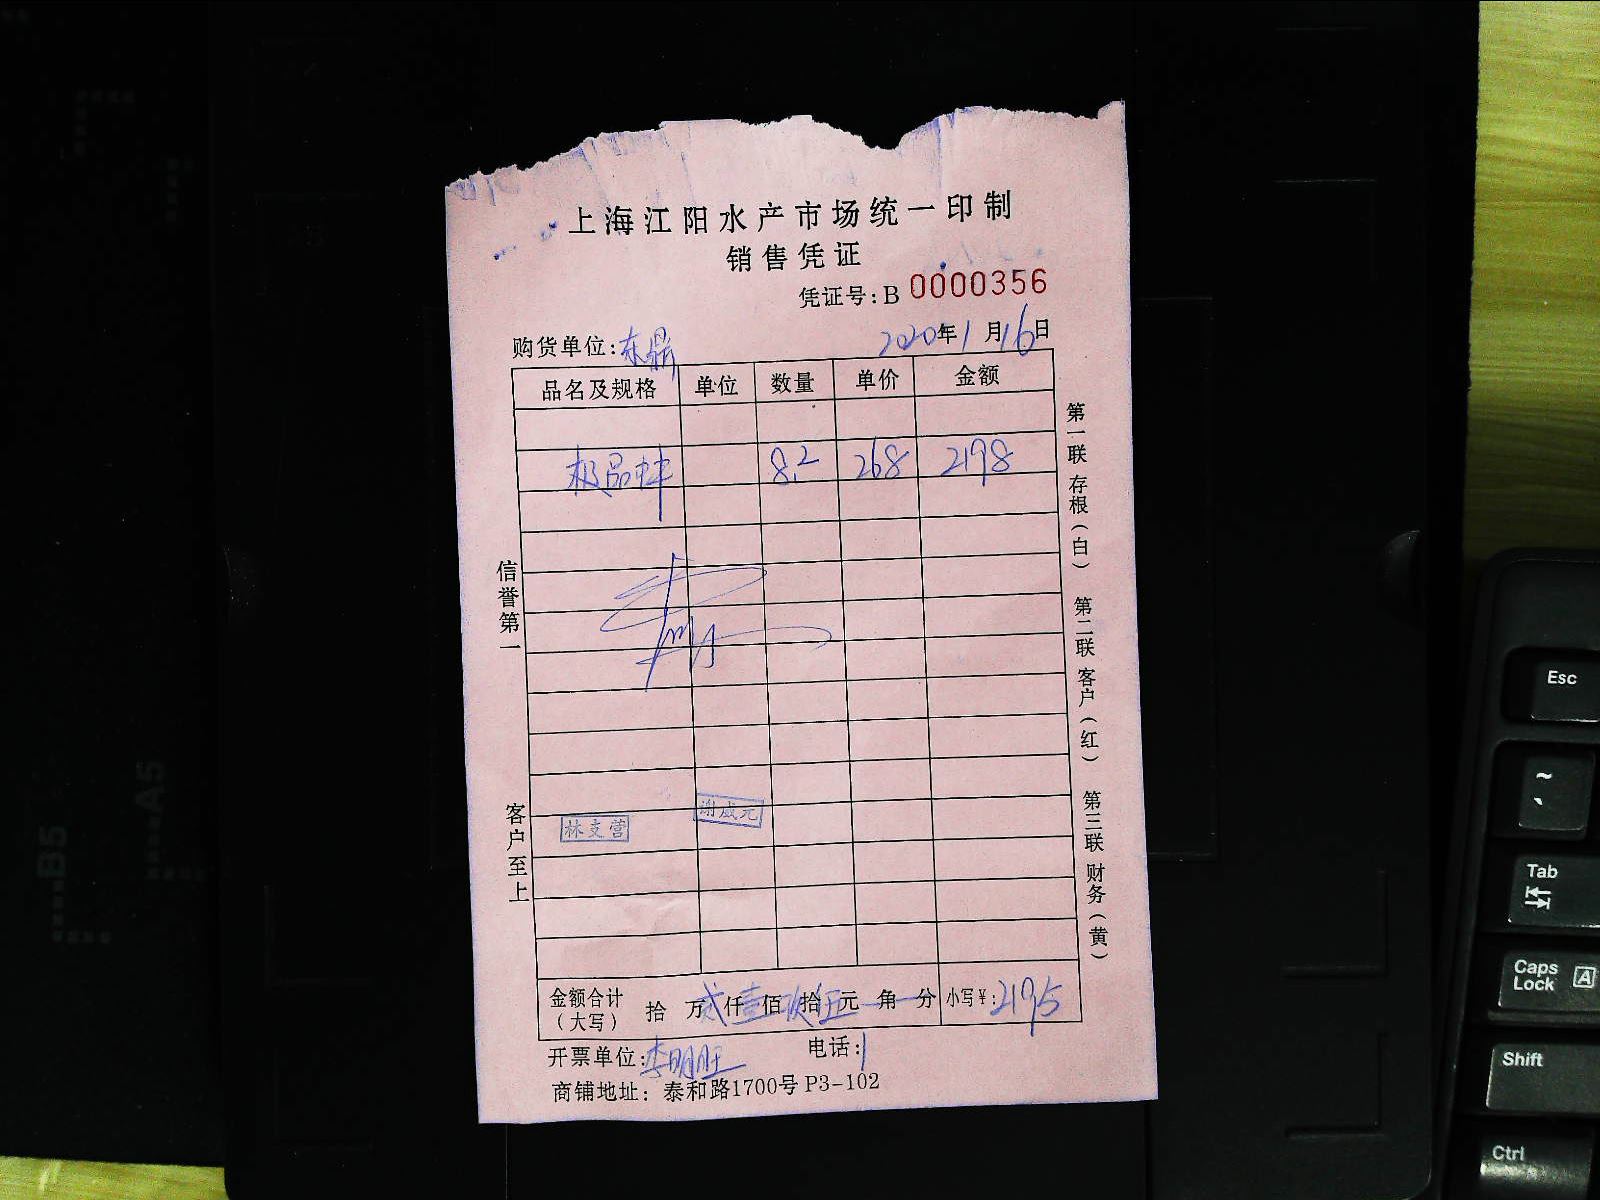 上海江阳水产市场统一印制
销售凭证
凭证号:B 0000356
购货单位:东鼎 2020年1月16日
品名及规格 单位 数量 单价 金额
极品 8.2 268 2198
信誉第一
客户至上
第一联 存根(白) 第二联 客户(红) 第三联 财务(黄)
林支营
谢成元
金额合计(大写) 拾 万 贰仟 壹佰 玖拾 伍元 角 分 小写¥:2195
开票单位:李明旺 电话:
商铺地址: 泰和路1700号 P3-102
B5
A5
Esc
~
`
Tab
Caps Lock A
Shift
Ctrl